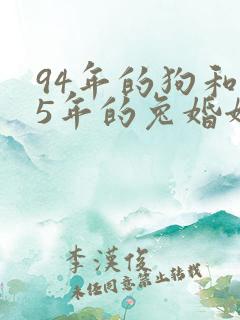 94年的狗和
5年的兔婚姻
李漢俊
未经同意禁止转载